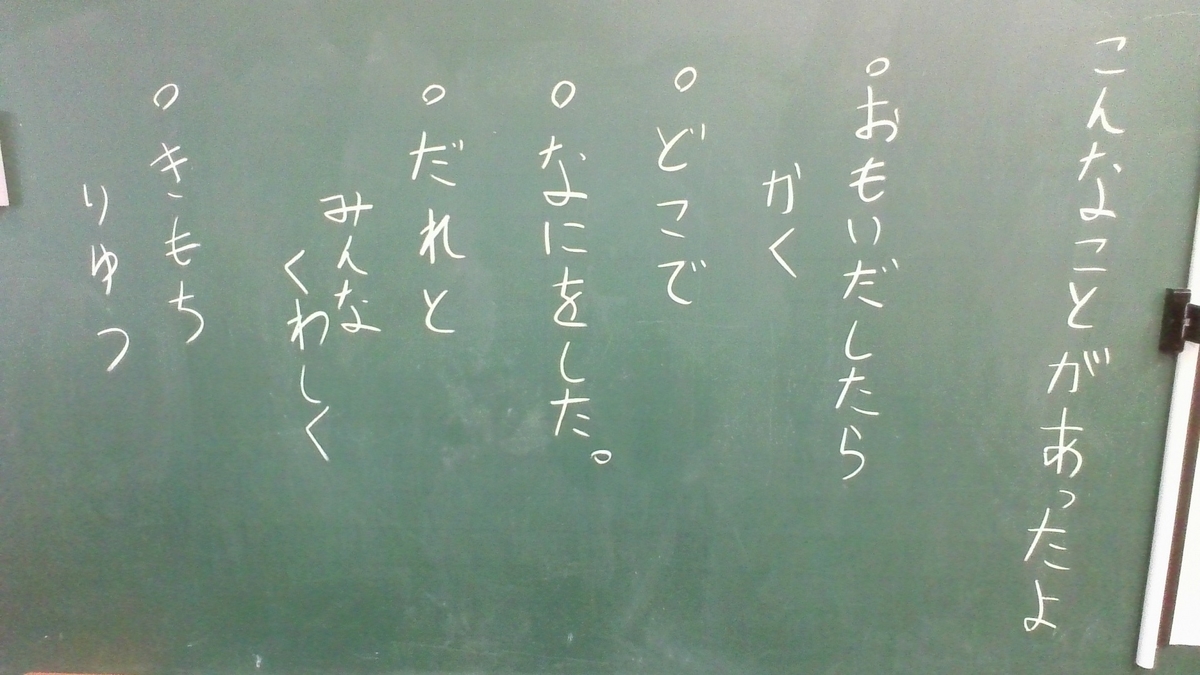 こんなことがあったよ
○おもいだしたら
かく
○どこで
○なにをした。
○だれと
みんな
くわしく
○きもち
りゆう